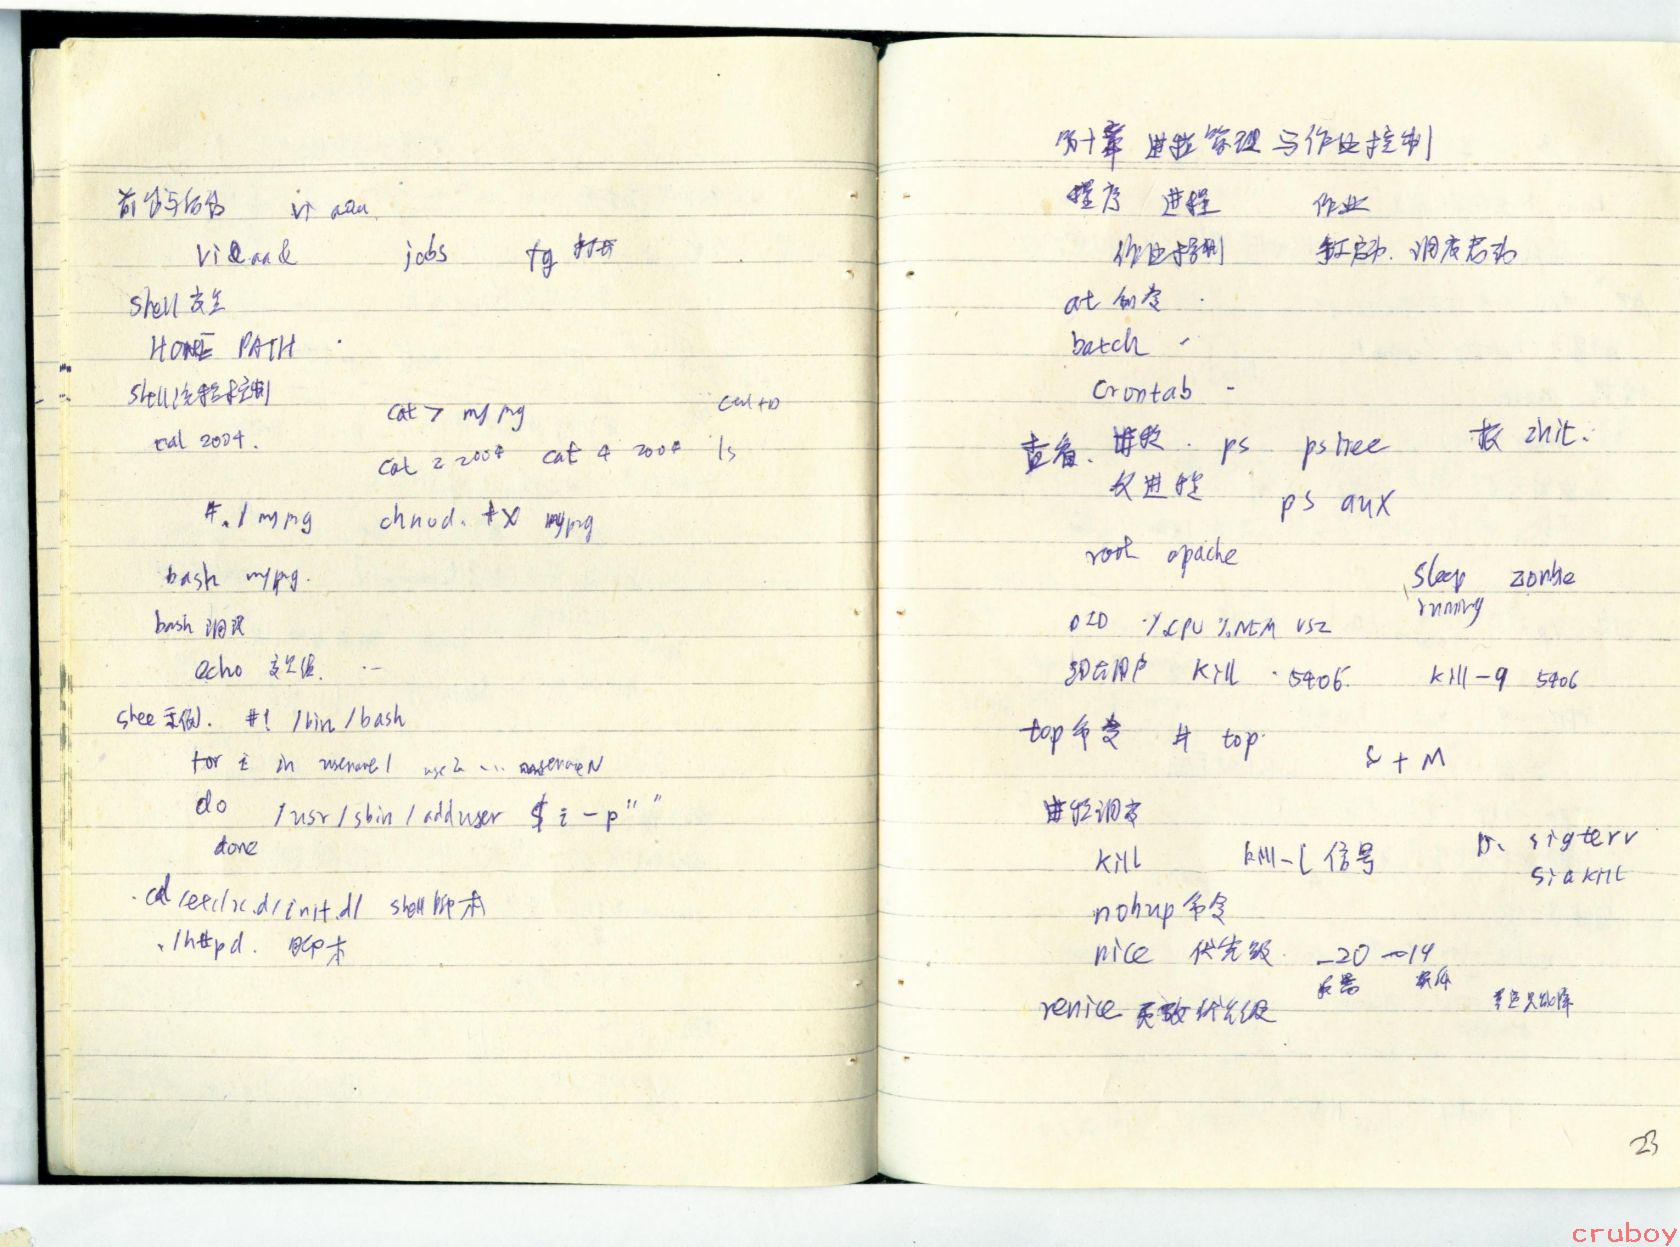 前台与后台 vi aaa
vi aa & jobs fg 打开
shell 变量
HOME PATH
shell 流程控制
cat > myprg ctrl+D
cal 2004.
cat 2 2004 cat 4 2004 ls
#./myprg chmod. +x myprg
bash myprg.
bash 调试
echo 变量值. ...
示例. #! /bin/bash
for i in username1 use2 ... usernameN
do /usr/sbin/adduser $i -p" "
done
cd /etc/rc.d/init.d/ shell 脚本
./httpd. 脚本
第十章 进程管理与作业控制
程序 进程 作业
作业控制 手工启动. 调度启动
at 命令
batch
crontab -
查看. 进程. ps pstree init.
父进程
ps aux
root apache
sleep zombe
running
%CPU %MEM VSZ
用户 kill 5406. kill -9 5406
top 命令 # top
S + M
进程调度
kill kill -l 信号 15. sigterv
sigkill
nohup 命令
nice 优先级 -20 —19
最高 最低
renice 更改优先级
23
cruboy